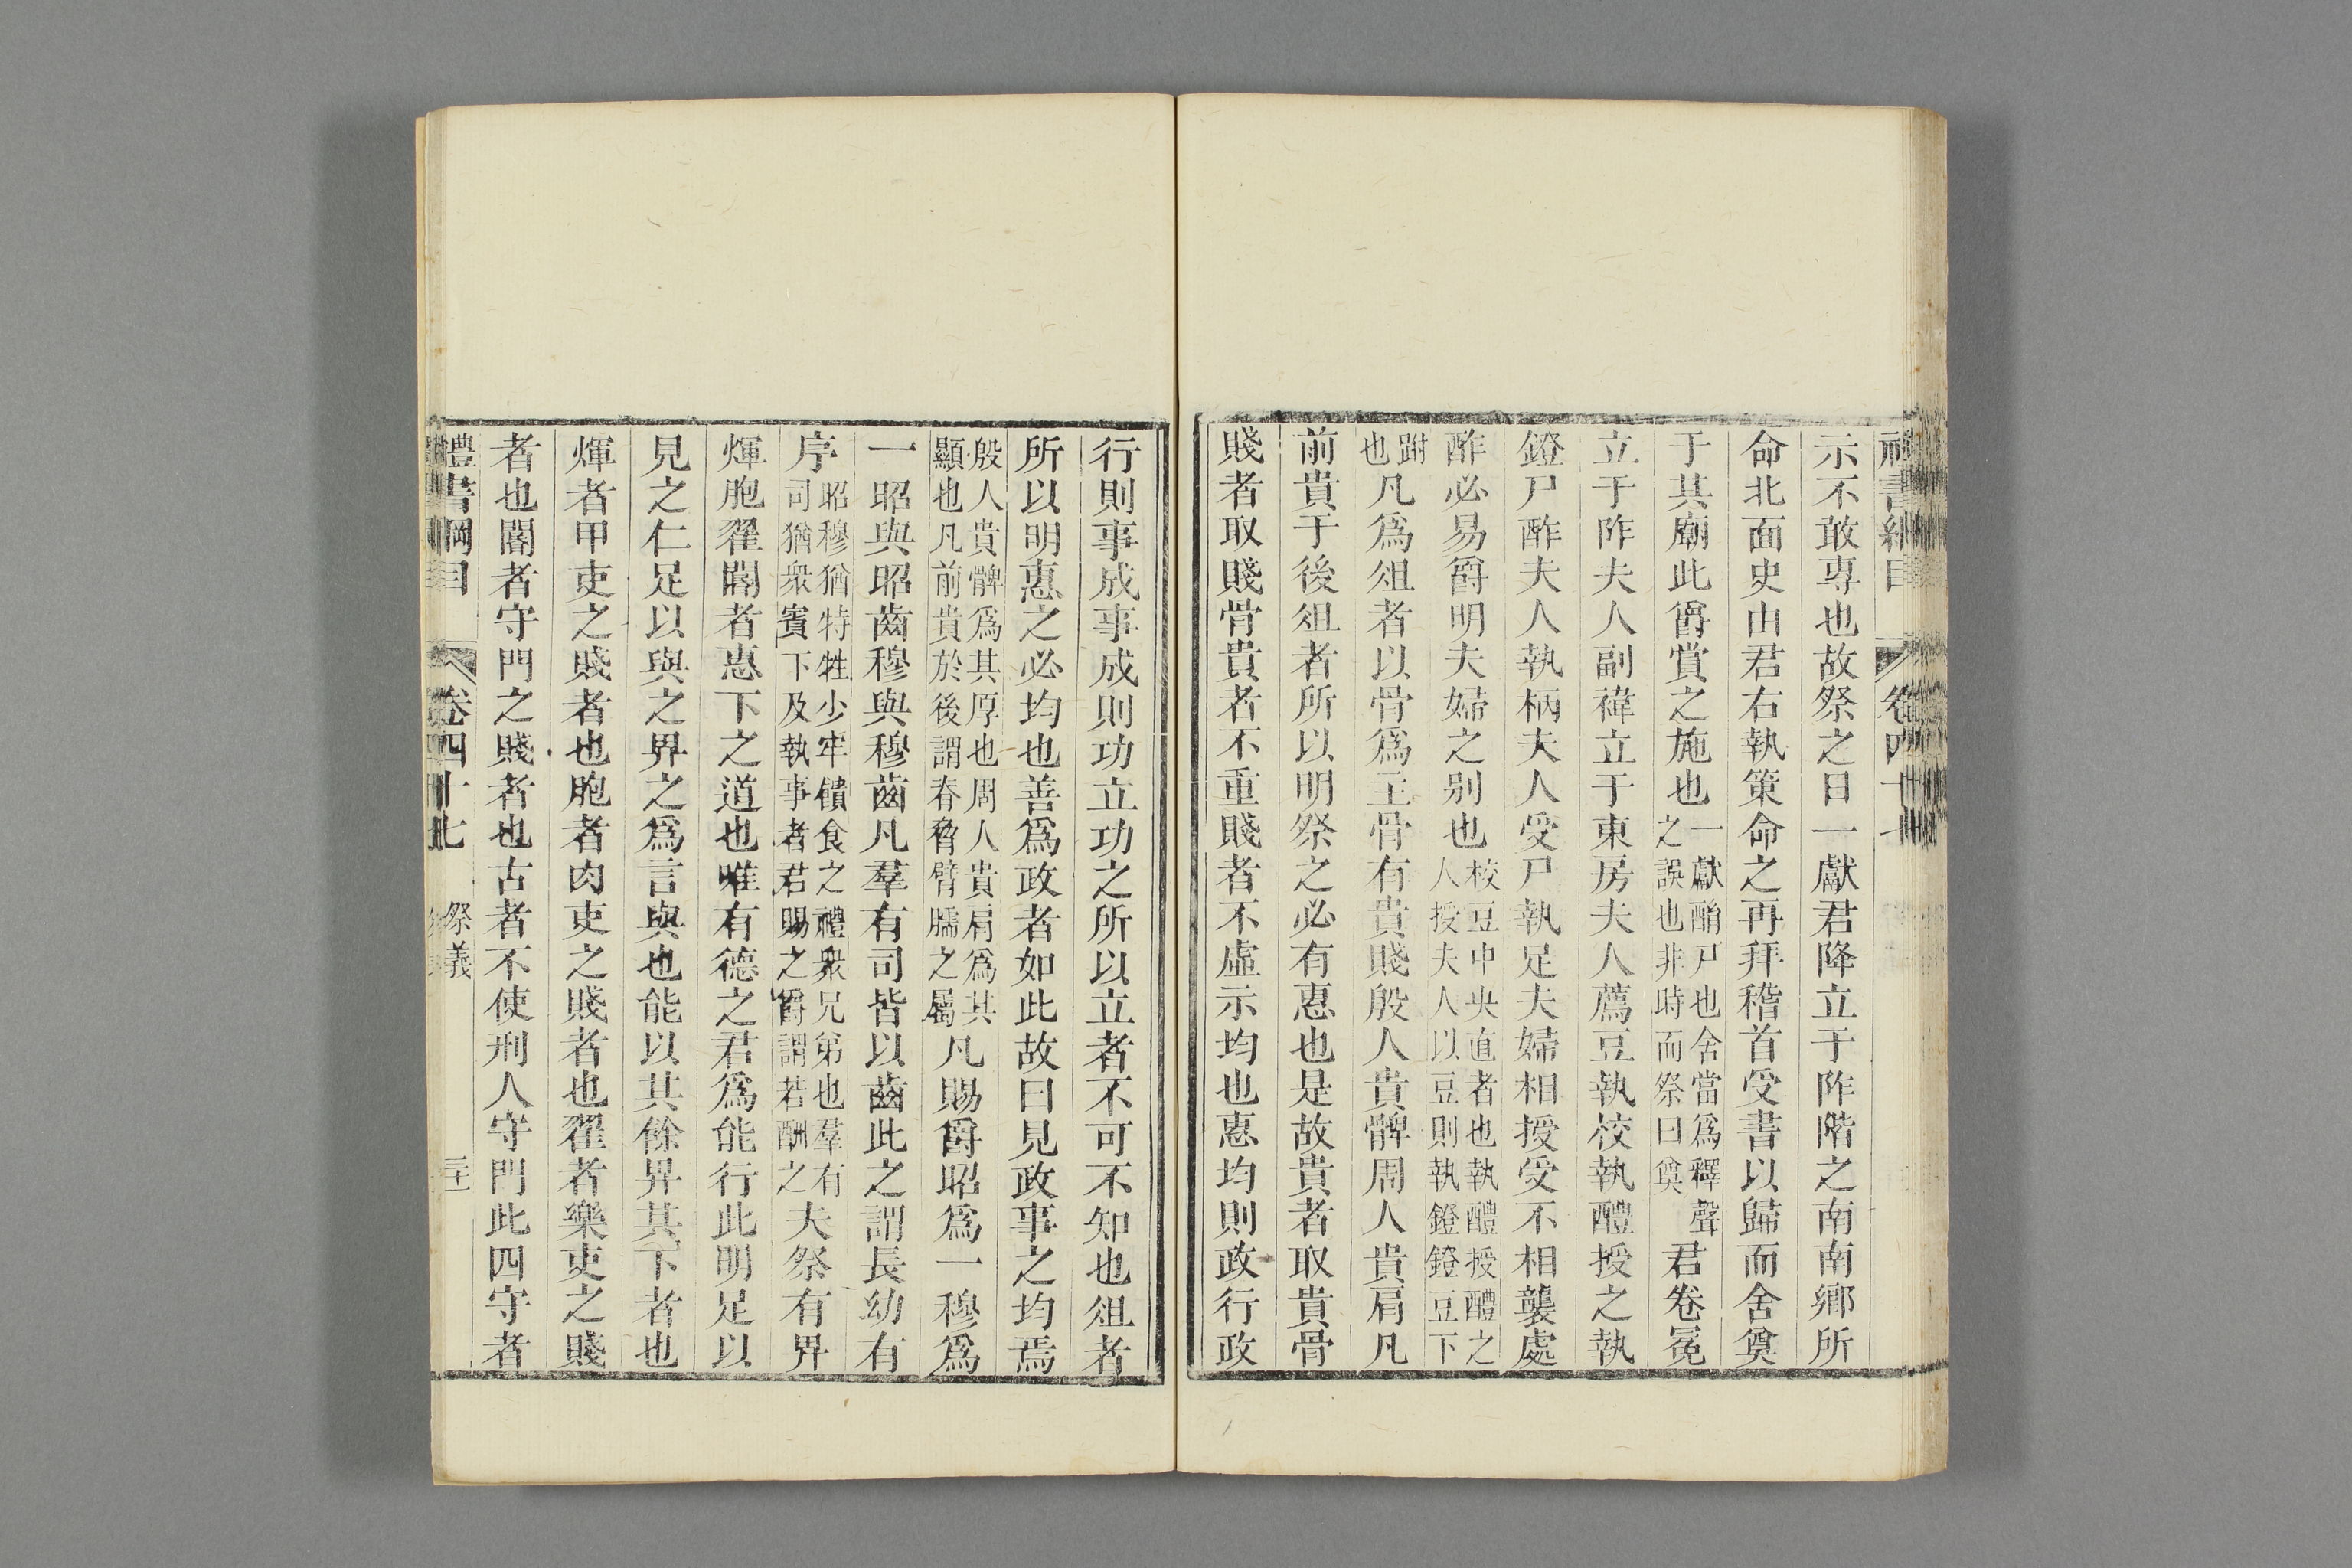 禮書綱目　卷四十七
示不敢專也故祭之日一獻君降立于阼階之南南鄉所
命北面史由君右執策命之再拜稽首受書以歸而舍奠
于其廟此爵賞之施也一獻酳尸也舍當爲釋聲之誤也非時而祭曰奠君卷冕
立于阼夫人副褘立于東房夫人薦豆執校執醴授之執
鐙尸酢夫人執柄夫人受尸執足夫婦相授受不相襲處
酢必易爵明夫婦之别也校豆中央直者也執醴授醴之人授夫人以豆則執鐙鐙豆下
跗也凡爲俎者以骨爲主骨有貴賤殷人貴髀周人貴肩凡
前貴于後俎者所以明祭之必有惠也是故貴者取貴骨
賤者取賤骨貴者不重賤者不虛示均也惠均則政行政
行則事成事成則功立功之所以立者不可不知也俎者
所以明惠之必均也善爲政者如此故曰見政事之均焉
殷人貴髀爲其厚也周人貴肩爲其顯也凡前貴於後謂脊脅臂臑之屬凡賜爵昭爲一穆爲
一昭與昭齒穆與穆齒凡羣有司皆以齒此之謂長幼有
序昭穆猶特牲少牢饋食之禮衆兄弟也羣有司猶衆賓下及執事者君賜之爵謂若酬之夫祭有畀
煇胞翟閽者惠下之道也唯有德之君爲能行此明足以
見之仁足以與之畀之爲言與也能以其餘畀其下者也
煇者甲吏之賤者也胞者肉吏之賤者也翟者樂吏之賤
者也閽者守門之賤者也古者不使刑人守門此四守者
禮書綱目　卷四十七　祭義